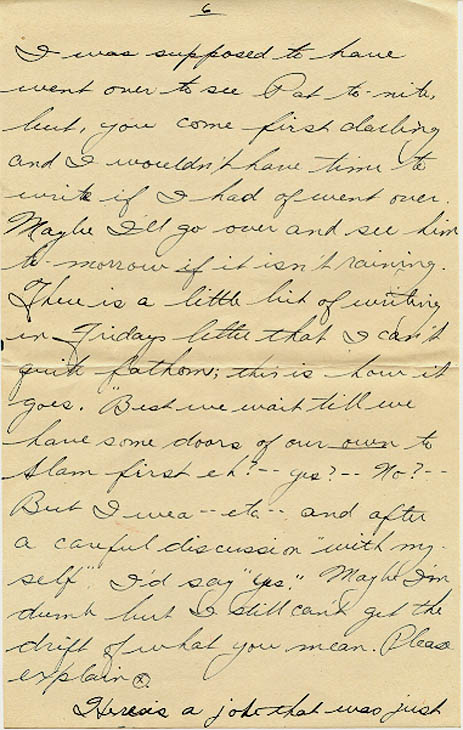 6
I was supposed to have
went over to see Pat to-nite,
but, you come first darling
and I wouldn't have time to
write if I had of went over.
Maybe I'll go over and see him
to-morrow if it isn't raining.
There is a little bit of writing
in Fridays letter that I can't
quite fathom; this is how it
goes. "Best we wait till we
have some doors of our own to
slam first eh?-- yes?-- No?--
But I wea--eta-- and after
a careful discussion "with my-
self". I'd say "yes." Maybe I'm
dumb but I still can't get the
drift of what you mean. Please
explain (x).
Here's a joke that was just